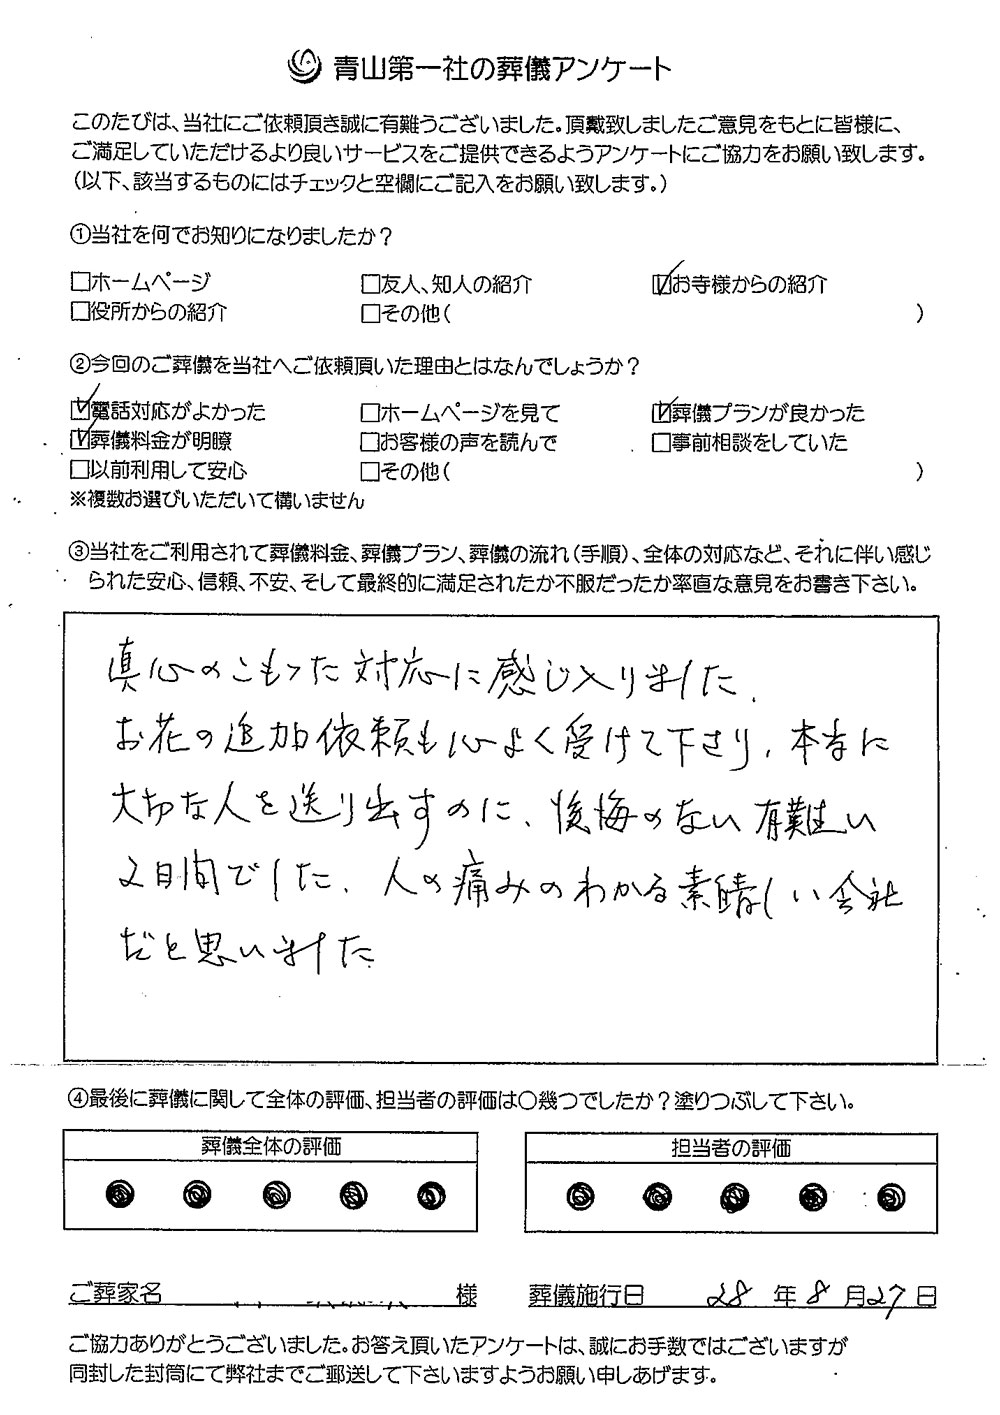 青山第一社の葬儀アンケート
このたびは、当社にご依頼頂き誠に有難うございました。頂戴致しましたご意見をもとに皆様に、
ご満足していただけるより良いサービスをご提供できるようアンケートにご協力をお願い致します。
（以下、該当するものにはチェックと空欄にご記入をお願い致します。）
①当社を何でお知りになりましたか？
□ホームページ □友人、知人の紹介 ☑お寺様からの紹介
□役所からの紹介 □その他（ ）
②今回のご葬儀を当社へご依頼頂いた理由とはなんでしょうか？
☑電話対応がよかった □ホームページを見て ☑葬儀プランが良かった
☑葬儀料金が明瞭 □お客様の声を読んで □事前相談をしていた
□以前利用して安心 □その他（ ）
※複数お選びいただいて構いません
③当社をご利用されて葬儀料金、葬儀プラン、葬儀の流れ（手順）、全体の対応など、それに伴い感じ
られた安心、信頼、不安、そして最終的に満足されたか不服だったか率直な意見をお書き下さい。
真心のこもった対応に感じ入りました。
お花の追加依頼も心よく受けて下さり、本当に
大切な人を送り出すのに、後悔のない有難い
2日間でした。人の痛みのわかる素晴しい会社
だと思いました
④最後に葬儀に関して全体の評価、担当者の評価は〇幾つでしたか？塗りつぶして下さい。
葬儀全体の評価 担当者の評価
● ● ● ● ● ● ● ● ● ●
ご葬家名 様 葬儀施行日 28 年 8 月 27 日
ご協力ありがとうございました。お答え頂いたアンケートは、誠にお手数ではございますが
同封した封筒にて弊社までご郵送して下さいますようお願い申しあげます。